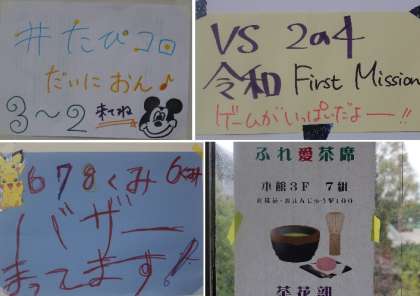 #たぴコロ
だいにおん♪
3〜2 来てね
VS 2a4
令和 First Mission
ゲームがいっぱいだよー!!
678くみ
バザー
まってます!
ふれ愛茶席
本館3F 7組
茶花部